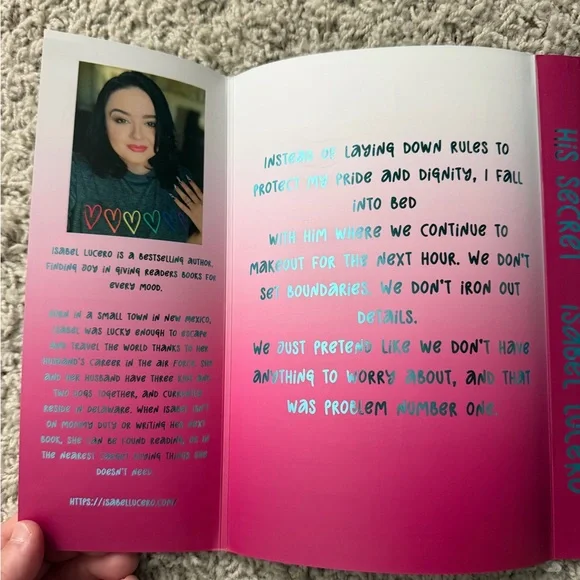 ISABEL LUCERO IS A BESTSELLING AUTHOR,
FINDING JOY IN GIVING READERS BOOKS FOR
EVERY MOOD.
BORN IN A SMALL TOWN IN NEW MEXICO,
ISABEL WAS LUCKY ENOUGH TO ESCAPE
AND TRAVEL THE WORLD THANKS TO HER
HUSBAND'S CAREER IN THE AIR FORCE. SHE
AND HER HUSBAND HAVE THREE KIDS AND
TWO DOGS TOGETHER, AND CURRENTLY
RESIDE IN DELAWARE. WHEN ISABEL ISN'T
ON MOMMY DUTY OR WRITING HER NEXT
BOOK, SHE CAN BE FOUND READING, OR IN
THE NEAREST TARGET BUYING THINGS SHE
DOESN'T NEED.
HTTPS://ISABELLUCERO.COM/
INSTEAD OF LAYING DOWN RULES TO
PROTECT MY PRIDE AND DIGNITY, I FALL
INTO BED
WITH HIM WHERE WE CONTINUE TO
MAKEOUT FOR THE NEXT HOUR. WE DON'T
SET BOUNDARIES. WE DON'T IRON OUT
DETAILS.
WE JUST PRETEND LIKE WE DON'T HAVE
ANYTHING TO WORRY ABOUT, AND THAT
WAS PROBLEM NUMBER ONE.
HIS SECRET ISABEL LUCERO